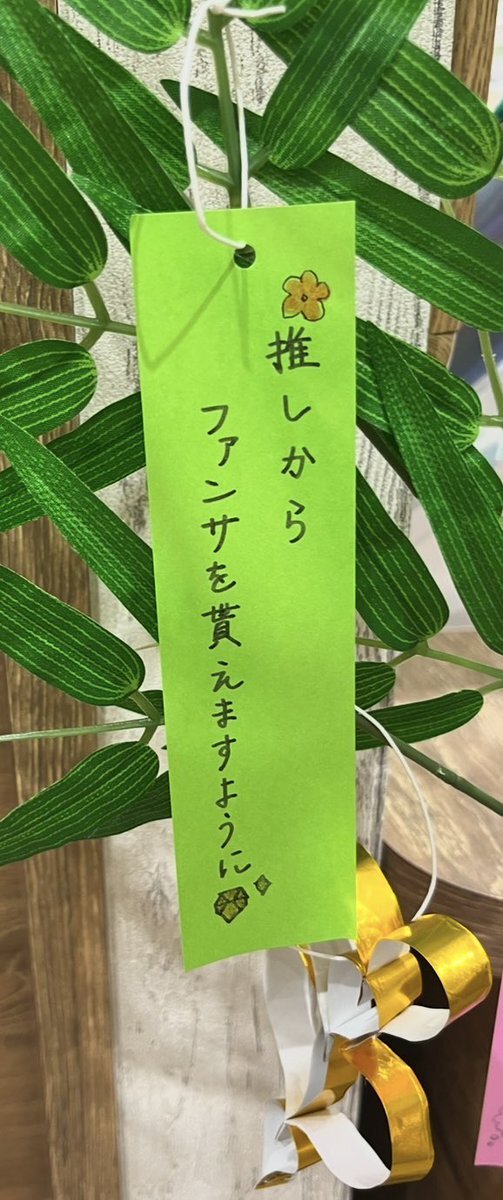 推しから
ファンサを貰えますように